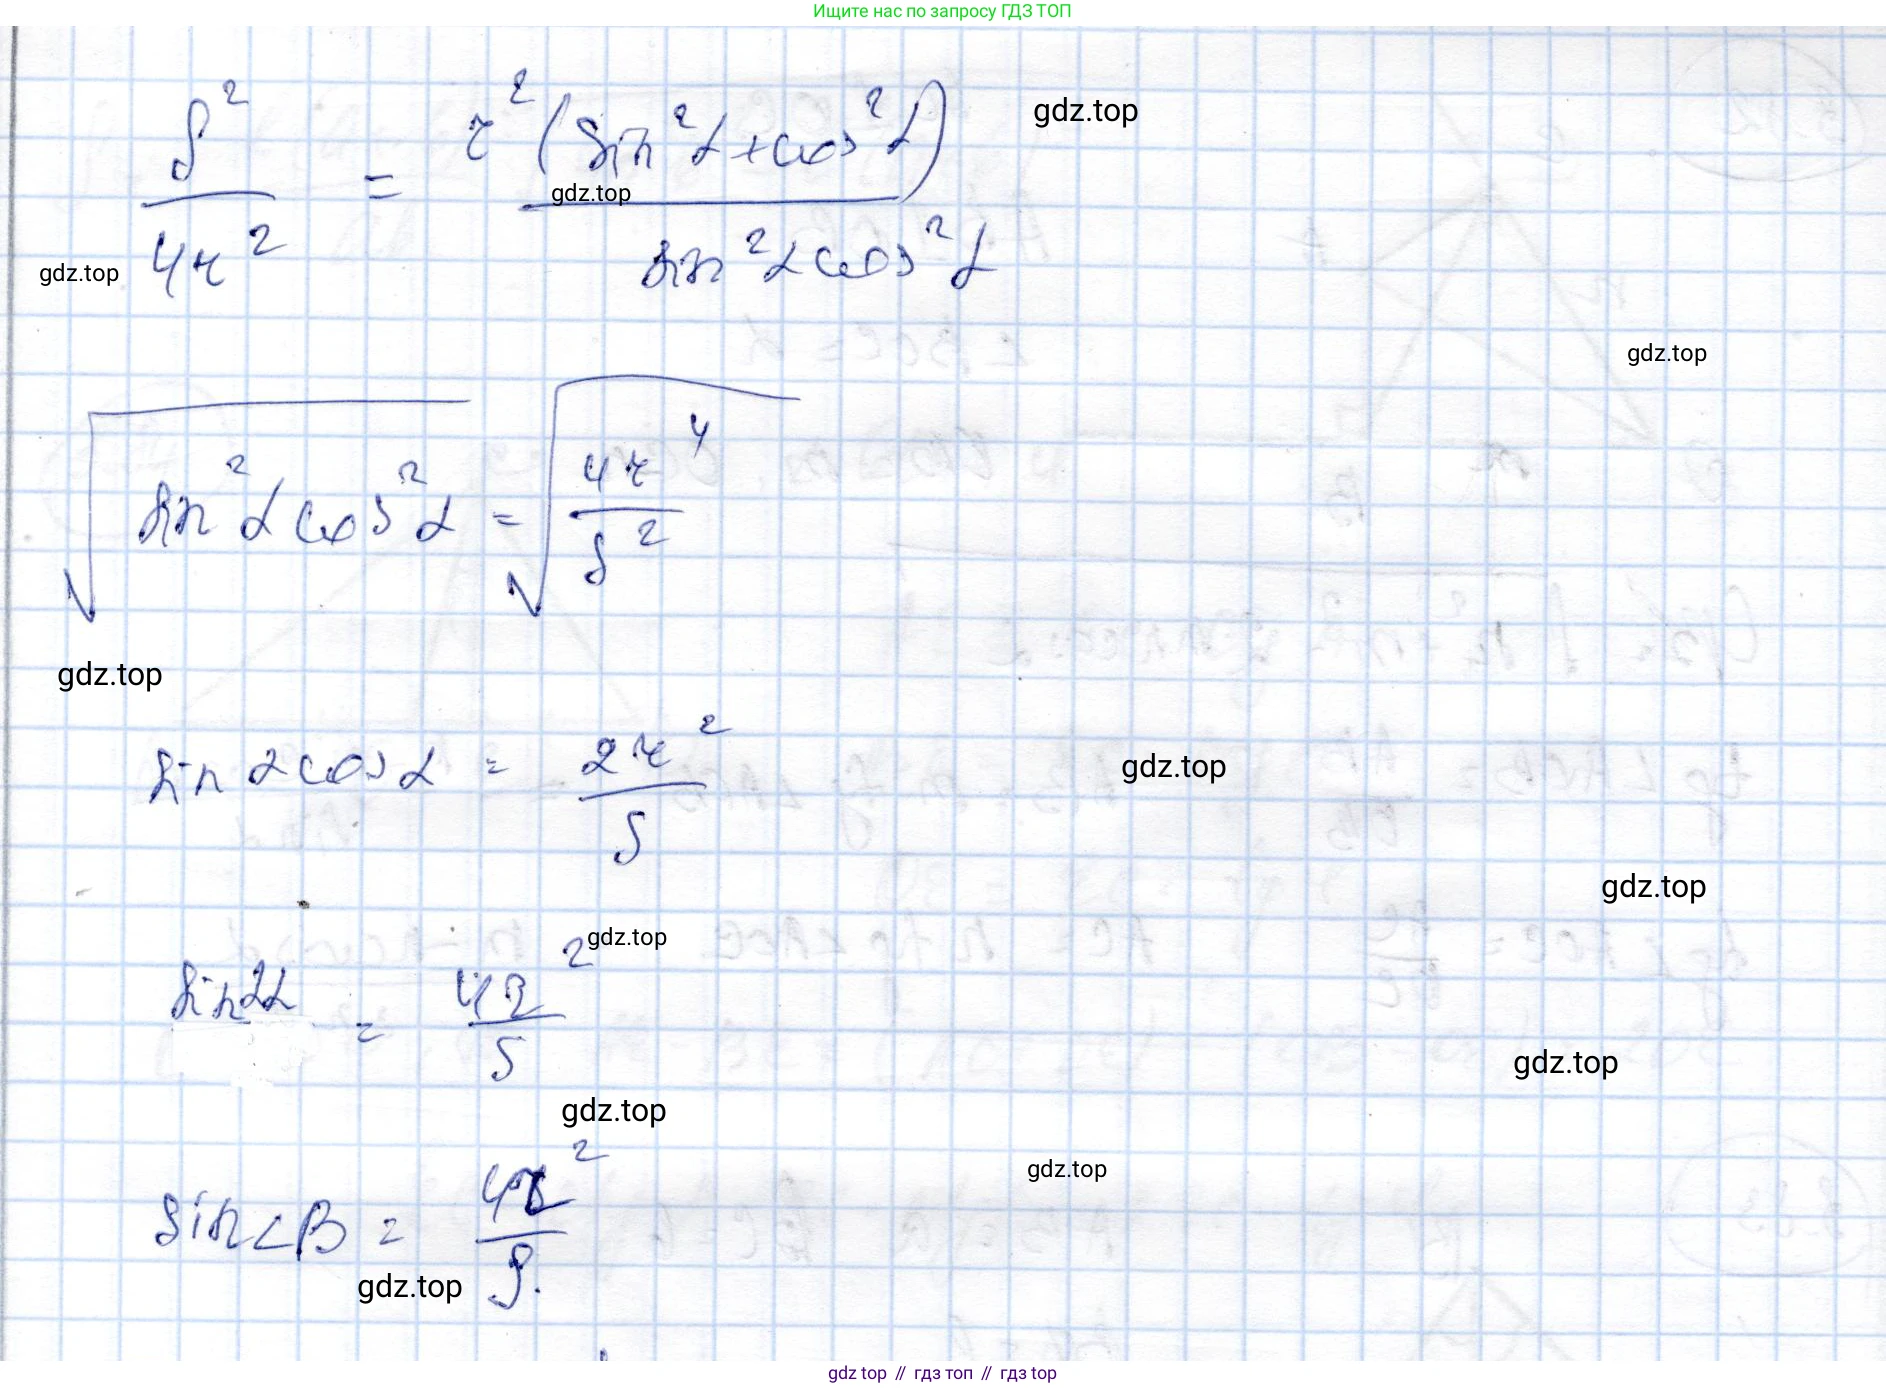 Ищите нас по запросу ГДЗ ТОП
S² / 4r² = r² (sin²α + cos²α) / sin²α cos²α
gdz.top
gdz.top
gdz.top
gdz.top
√(sin²α cos²α) = √(4r⁴ / S²)
gdz.top
sin α cos α = 2r² / S
gdz.top
gdz.top
gdz.top
sin2α = 4r² / S
gdz.top
gdz.top
gdz.top
sin∠B = 4r² / S.
gdz.top
gdz top // гдз топ // гдз top